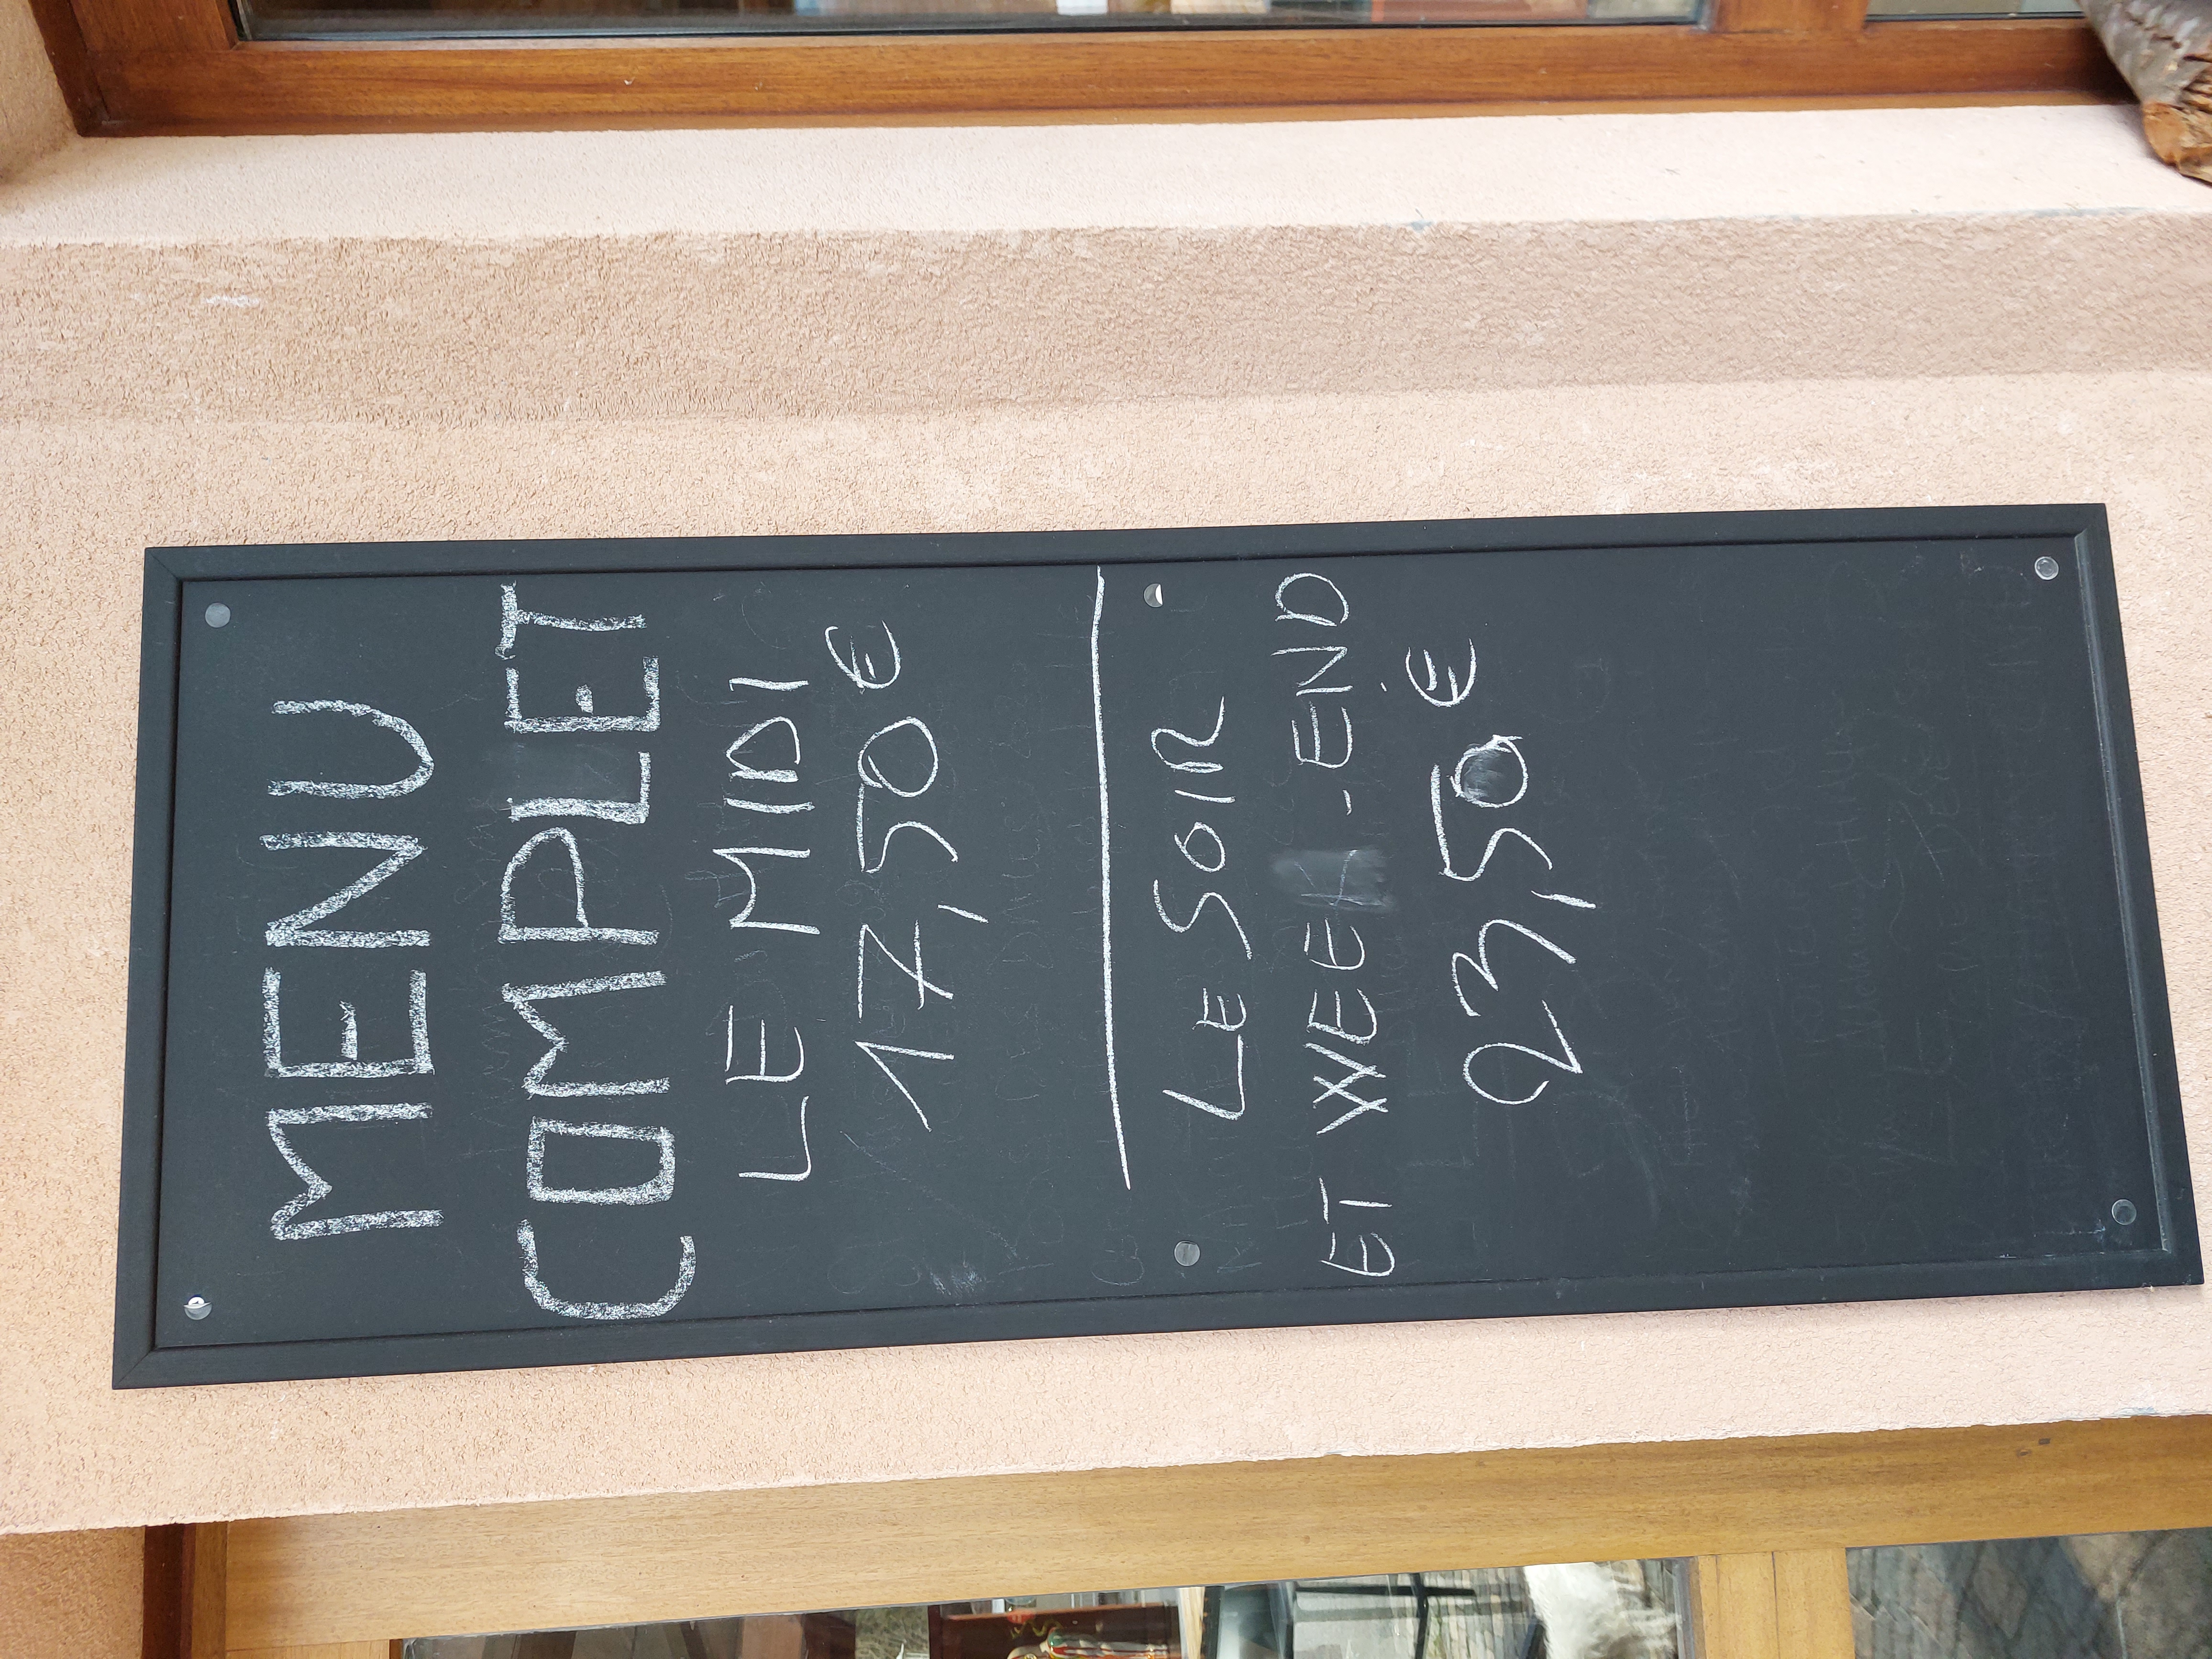 MENU
COMPLET
LE MIDI
17,50 €
LE SOIR
ET WEEK-END
23,50 €